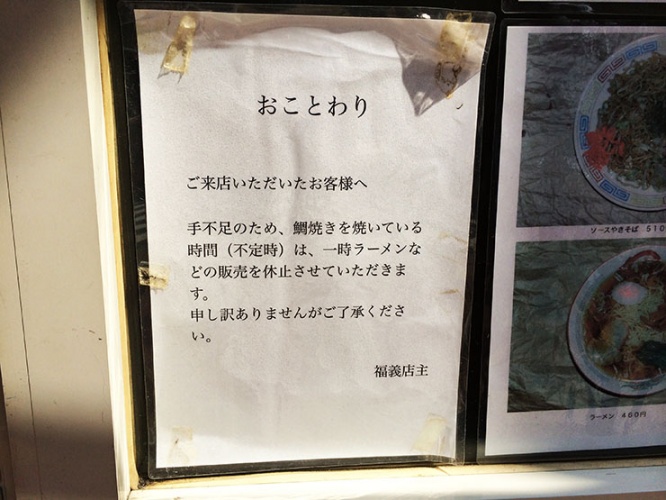 おことわり
ご来店いただいたお客様へ
手不足のため、鯛焼きを焼いている
時間（不定時）は、一時ラーメンな
どの販売を休止させていただきま
す。
申し訳ありませんがご了承くださ
い。
福義店主
ソースやきそば ５１０
ラーメン ４６０円